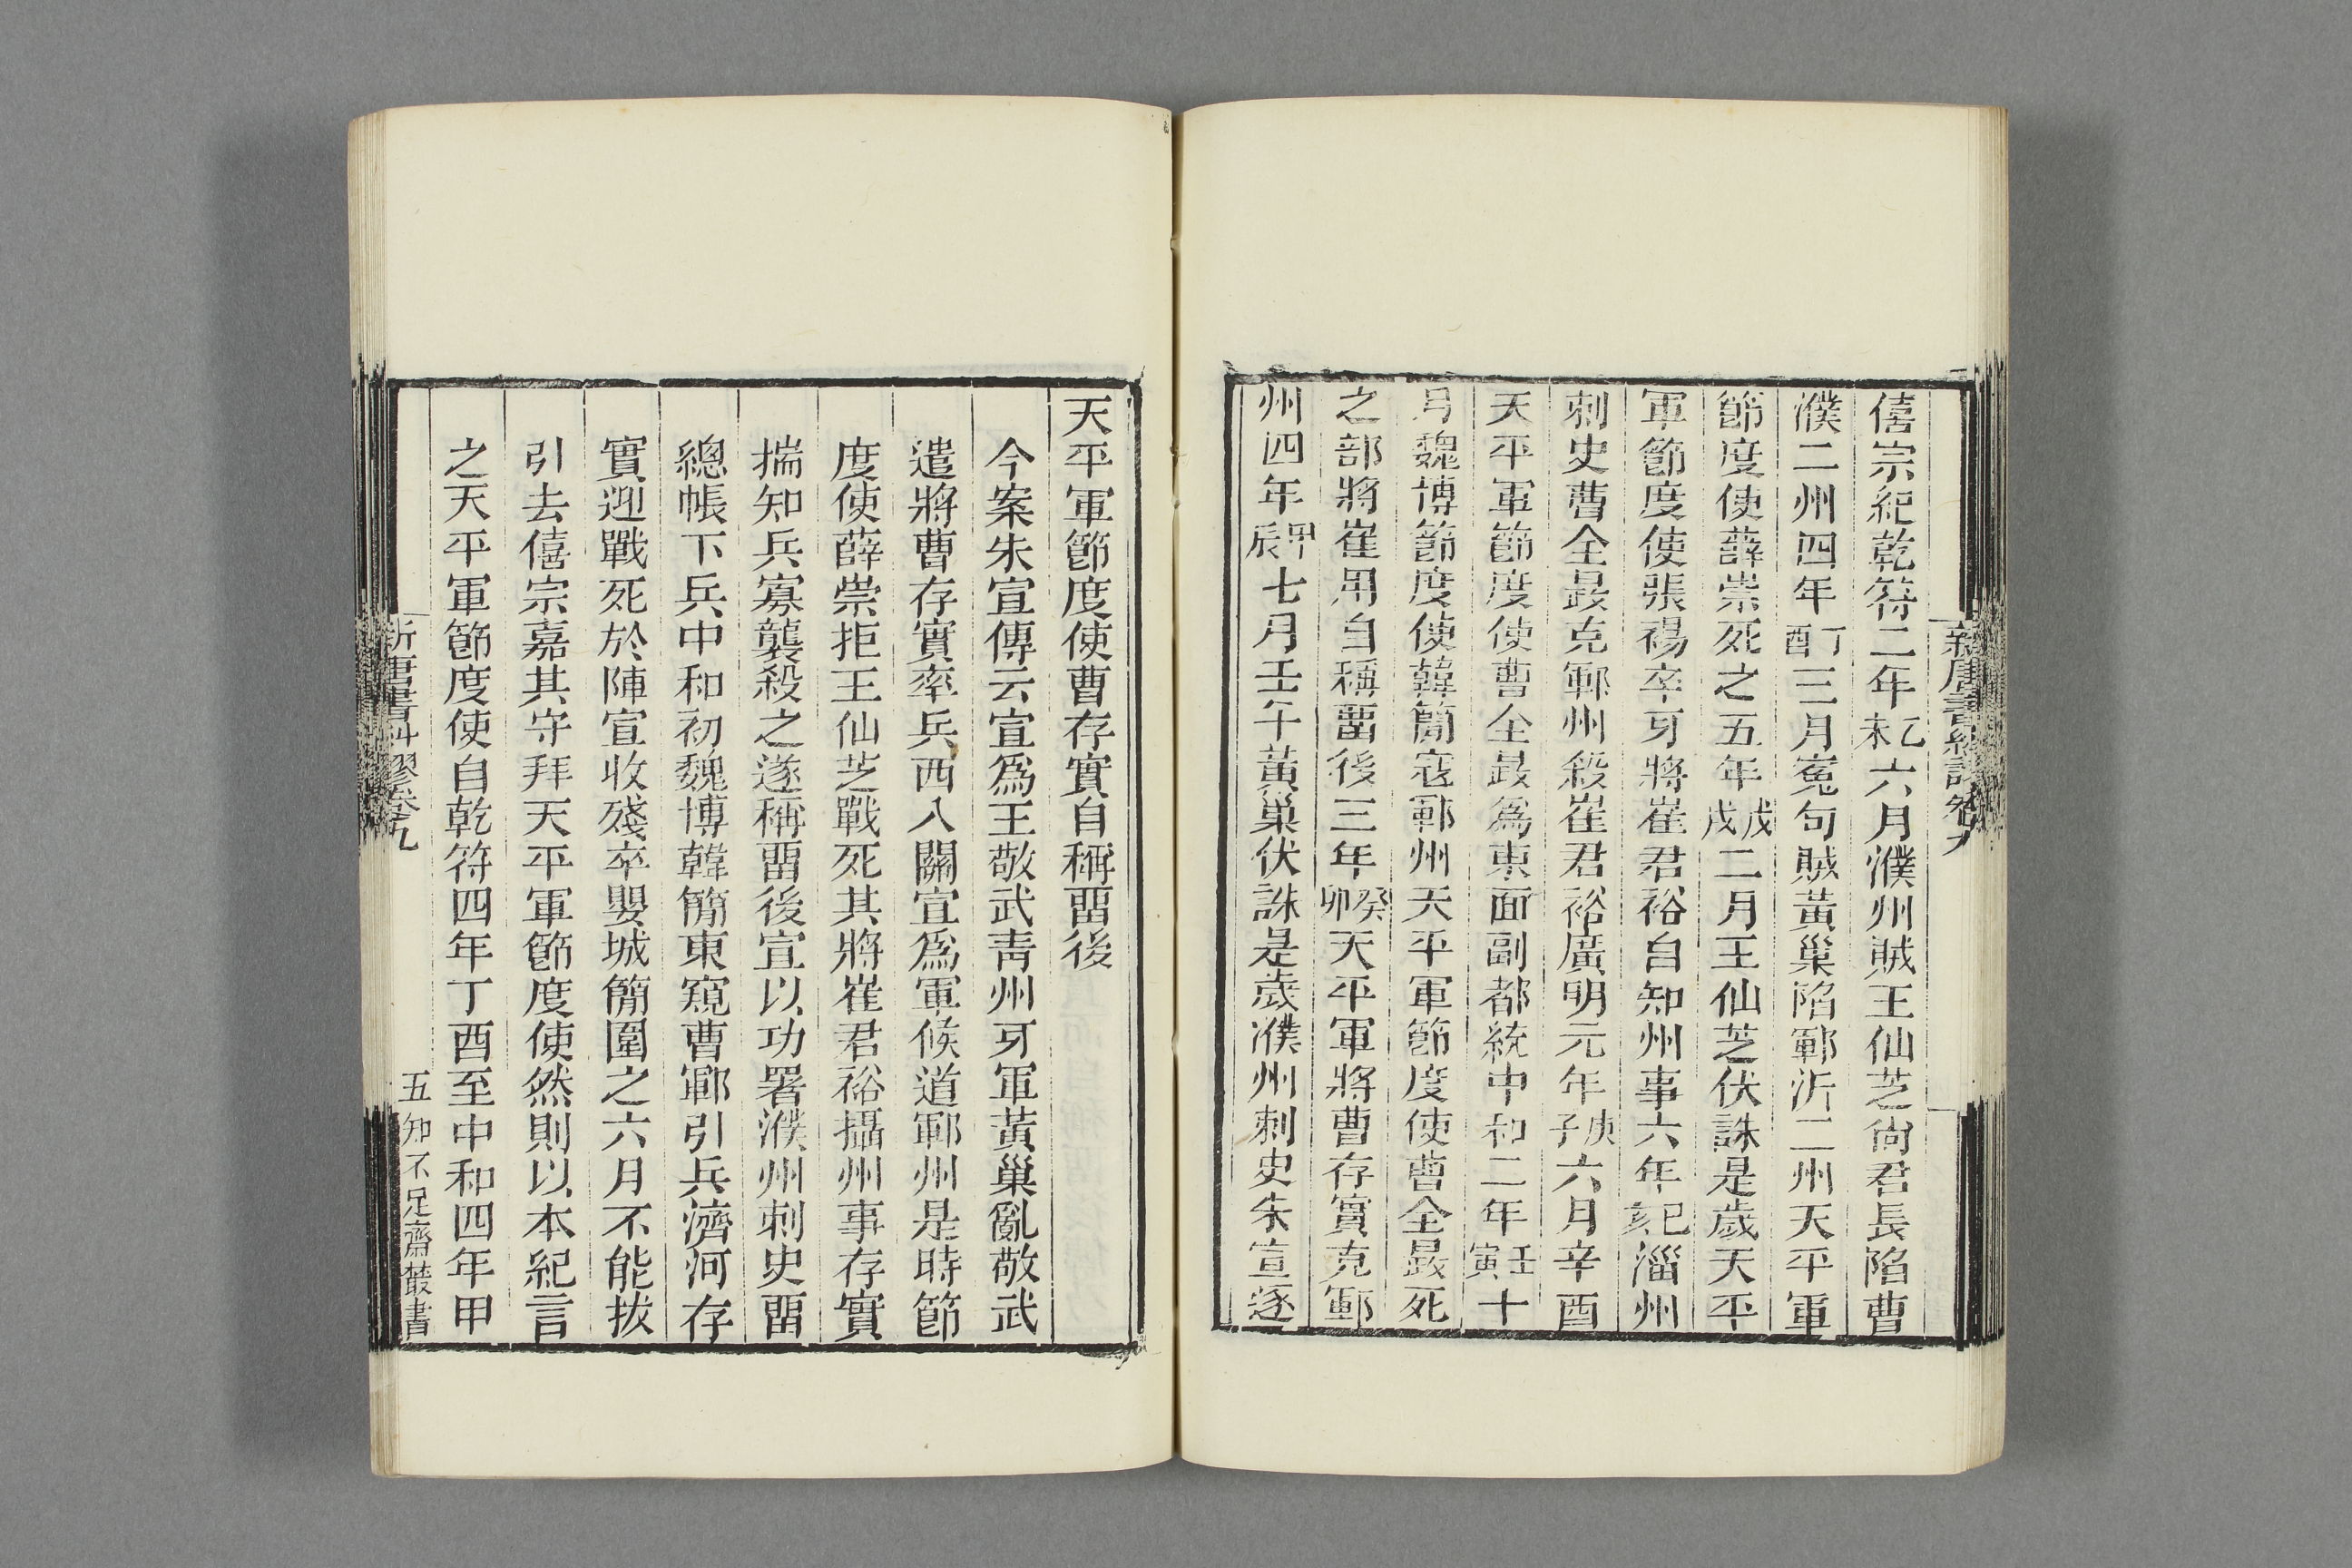 僖宗紀乾符二年乙未六月濮州賊王仙芝尙君長陷曹
濮二州四年丁酉三月寃句賊黃巢陷鄆沂二州天平軍
節度使薛崇死之五年戊戌二月王仙芝伏誅是歲天平
軍節度使張裼卒牙將崔君裕自知州事六年己亥淄州
刺史曹全晸克鄆州殺崔君裕廣明元年庚子六月辛酉
天平軍節度使曹全晸爲東面副都統中和二年壬寅十
月魏博節度使韓簡寇鄆州天平軍節度使曹全晸死
之部將崔用自稱畱後三年癸卯天平軍將曹存實克鄆
州四年甲辰七月壬午黃巢伏誅是歲濮州刺史朱宣逐
天平軍節度使曹存實自稱畱後
今案朱宣傳云宣爲王敬武靑州牙軍黃巢亂敬武
遣將曹存實率兵西入關宣爲軍候道鄆州是時節
度使薛崇拒王仙芝戰死其將崔君裕攝州事存實
揣知兵寡襲殺之遂稱畱後宣以功署濮州刺史畱
總帳下兵中和初魏博韓簡東窺曹鄆引兵濟河存
實迎戰死於陣宣收殘卒嬰城簡圍之六月不能拔
引去僖宗嘉其守拜天平軍節度使然則以本紀言
之天平軍節度使自乾符四年丁酉至中和四年甲
新唐書糾謬卷九
五
知不足齋叢書